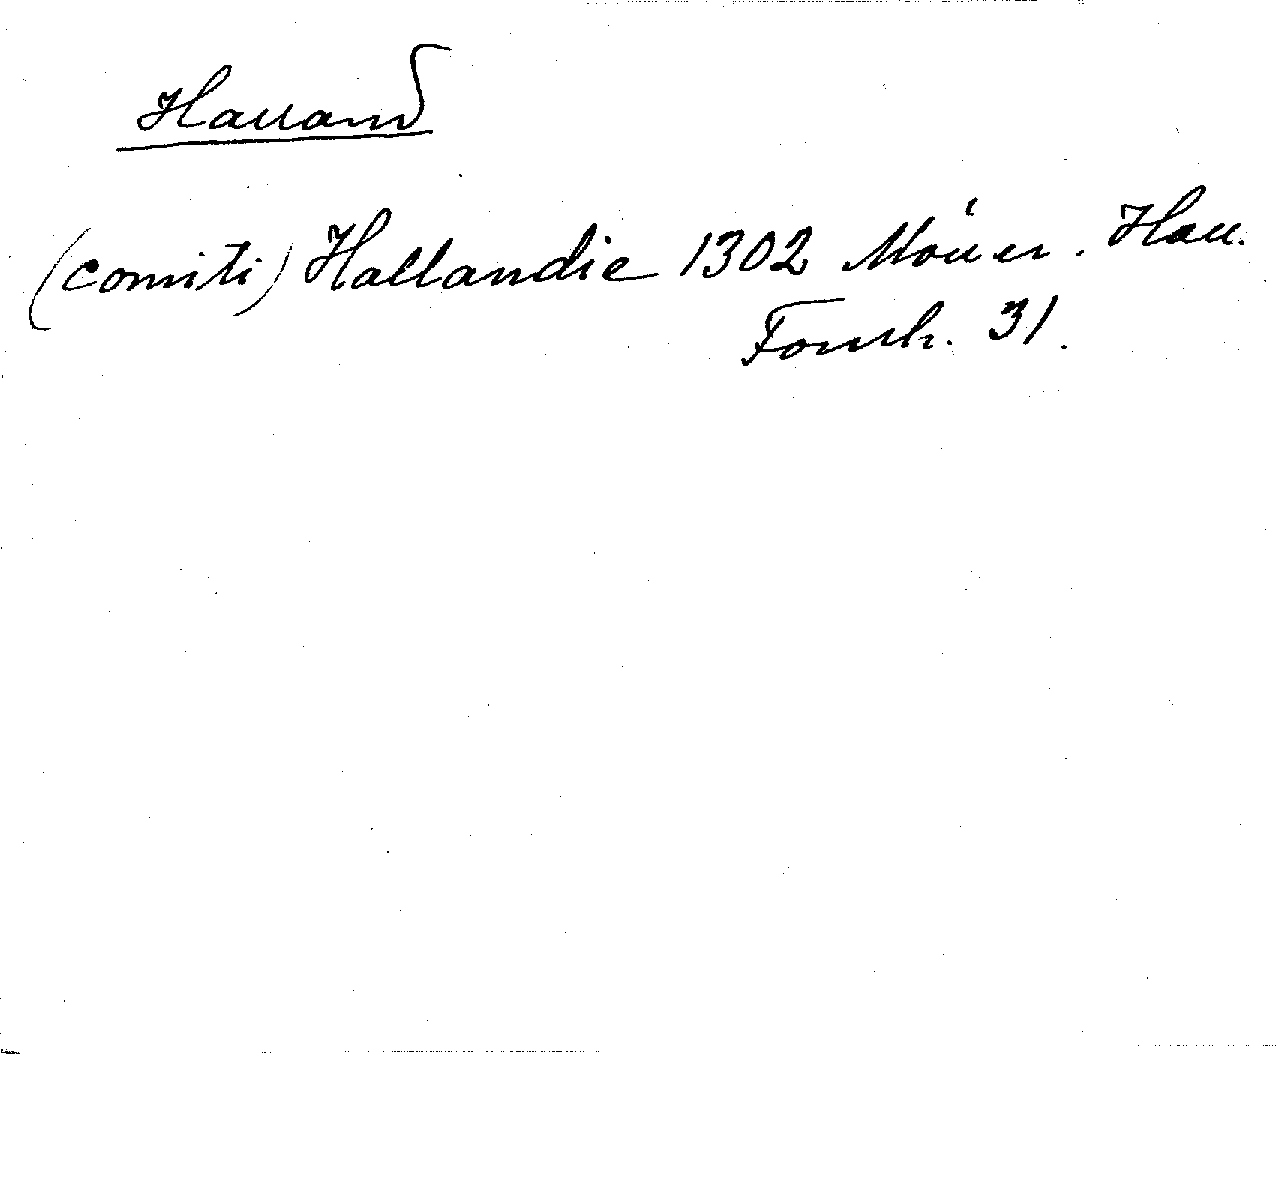 Halland
(comiti) Hallandie 1302 Möller. Hall.
Fornh. 31.